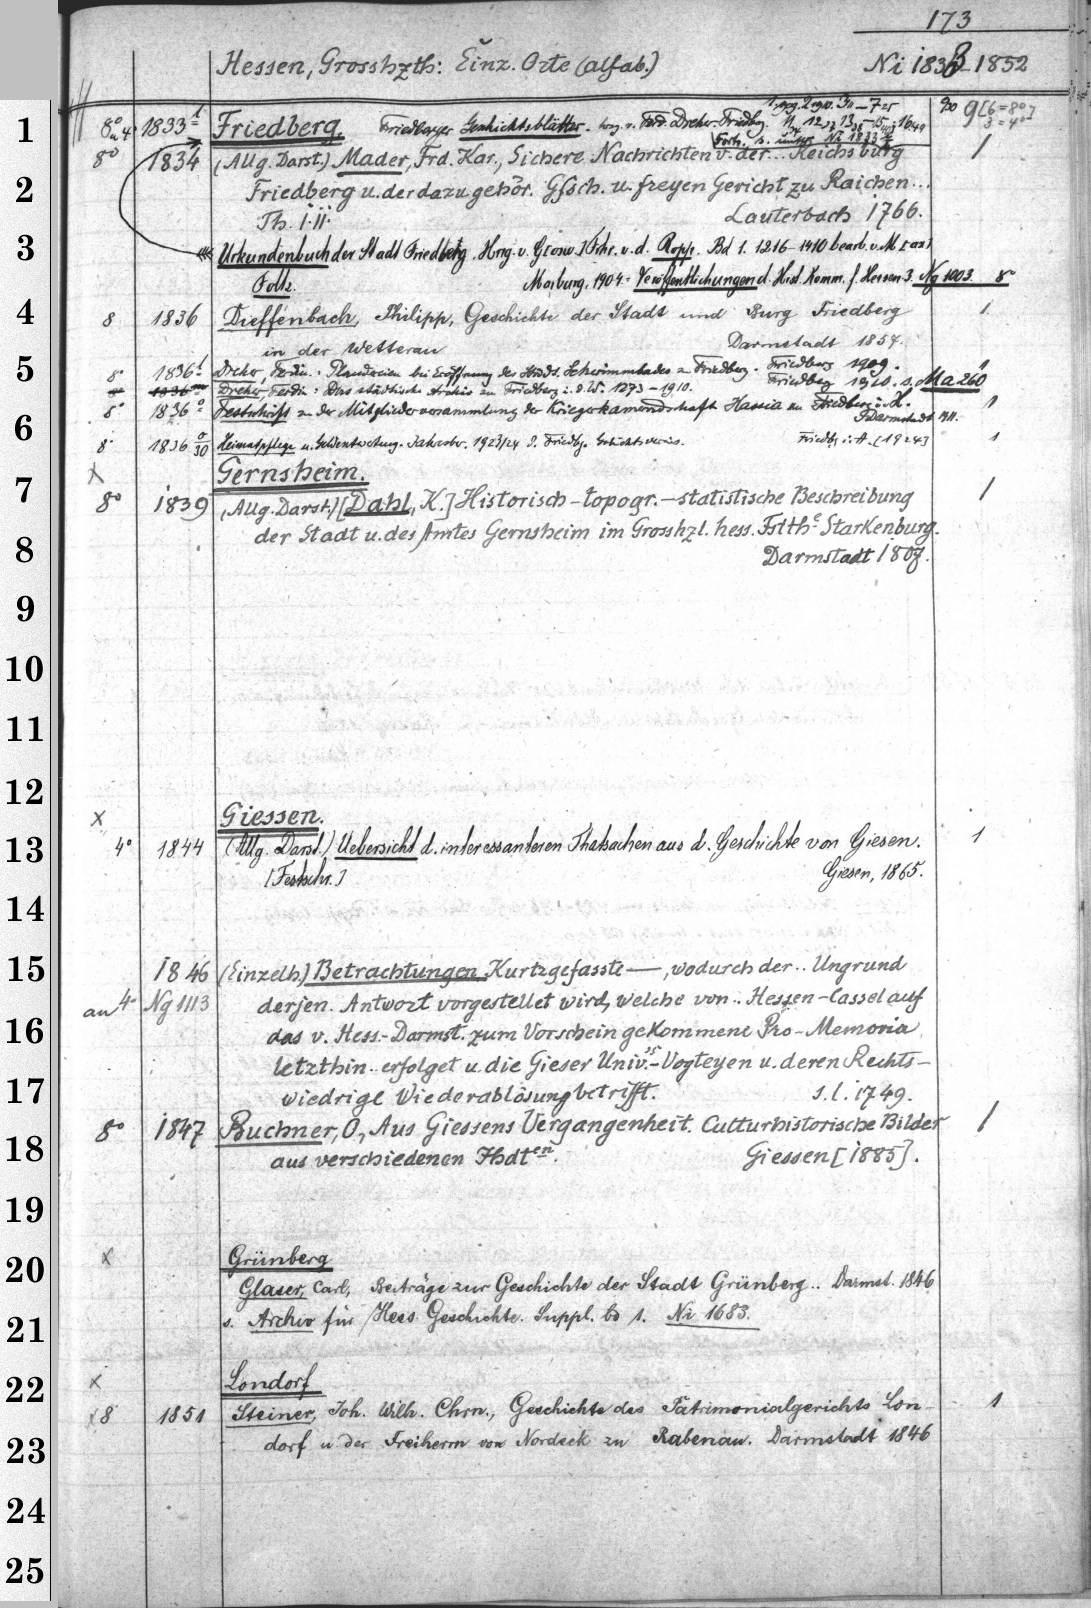 173
Hessen, Grosshzth: Einz. Orte (alfab.) Ni 1833-1852
8° u 4° 1833 Friedberg. Friedberger Geschichtsblätter. hrsg. v. Ferd. Dreher Friedbg.
Forts. s. unter Ni 1833
8° 1834 (Allg. Darst.) Mader, Frd. Kar., Sichere Nachrichten v. der... Reichsburg 1
Friedberg u. der dazu gehör. Gfsch. u. freyen Gericht zu Kaichen...
Th. I. II. Lauterbach 1766.
Urkundenbuch der Stadt Friedberg. Hrsg. v. G[row.] Frhr. v. d. Ropp. Bd 1. 1216-1410 bearb. v. M[ax]
Foltz. Marburg. 1904. Veröffentlichungen d. Hist. Komm. f. Hessen 3. Ng 1003. 8°
8 1836 Dieffenbach, Philipp, Geschichte der Stadt und Burg Friedberg 1
in der Wetterau Darmstadt 1857.
8° 1836 Dreher, Ferdin.: Plaudereien bei Eröffnung des Schwimmbades z. Friedberg. Friedberg 1909. 1
Dreher, Ferdin: Das städtische Archiv zu Friedberg i. d. W. 1273-1910. Friedberg 1910. s. Ma 260
8° 1836 Festschrift zu der Mitgliederversammlung der Kriegerkameradschaft Hassia zu Friedberg i. H. 1
Darmstadt 1911.
8° 1836 Heimatpflege u. Geldentwertung. Jahresber. 1923/24 d. Friedbg. Geschichtsvereins. Friedbg i. H. [1924] 1
x Gernsheim.
8° 1839 (Allg. Darst.) [Dahl, K.] Historisch-topogr.-statistische Beschreibung 1
der Stadt u. des Amtes Gernsheim im Grosshzl. hess. Fstth. Starkenburg.
Darmstadt 1807.
x Giessen.
4° 1844 (Allg. Darst.) Uebersicht d. interessanteren Thatsachen aus d. Geschichte von Giesen. 1
[Festschr.] Giesen, 1865.
1846 (Einzelh) Betrachtungen Kurtzgefasste —, wodurch der .. Ungrund
an 4° Ng 1113 derjen. Antwort vorgestellet wird, welche von .. Hessen-Cassel auf
das v. Hess.-Darmst. zum Vorschein gekommene Pro-Memoria
letzthin .. erfolget u. die Gieser Univ.-Vogteyen u. deren Rechts-
wiedrige Wiederablösung betrifft. s. l. 1749.
8° 1847 Buchner, O., Aus Giessens Vergangenheit. Culturhistorische Bilder 1
aus verschiedenen Jhdten. Giessen [1885].
x Grünberg
Glaser, Carl, Beiträge zur Geschichte der Stadt Grünberg.. Darmst. 1846
s. Archiv für Hess Geschichte. Suppl. bd 1. Ni 1683.
x Londorf
8 1851 Steiner, Joh. Wilh. Chrn., Geschichte des Patrimonialgerichts Lon- 1
dorf u der Freiherrn von Nordeck zu Rabenau. Darmstadt 1846
1
2
3
4
5
6
7
8
9
10
11
12
13
14
15
16
17
18
19
20
21
22
23
24
25